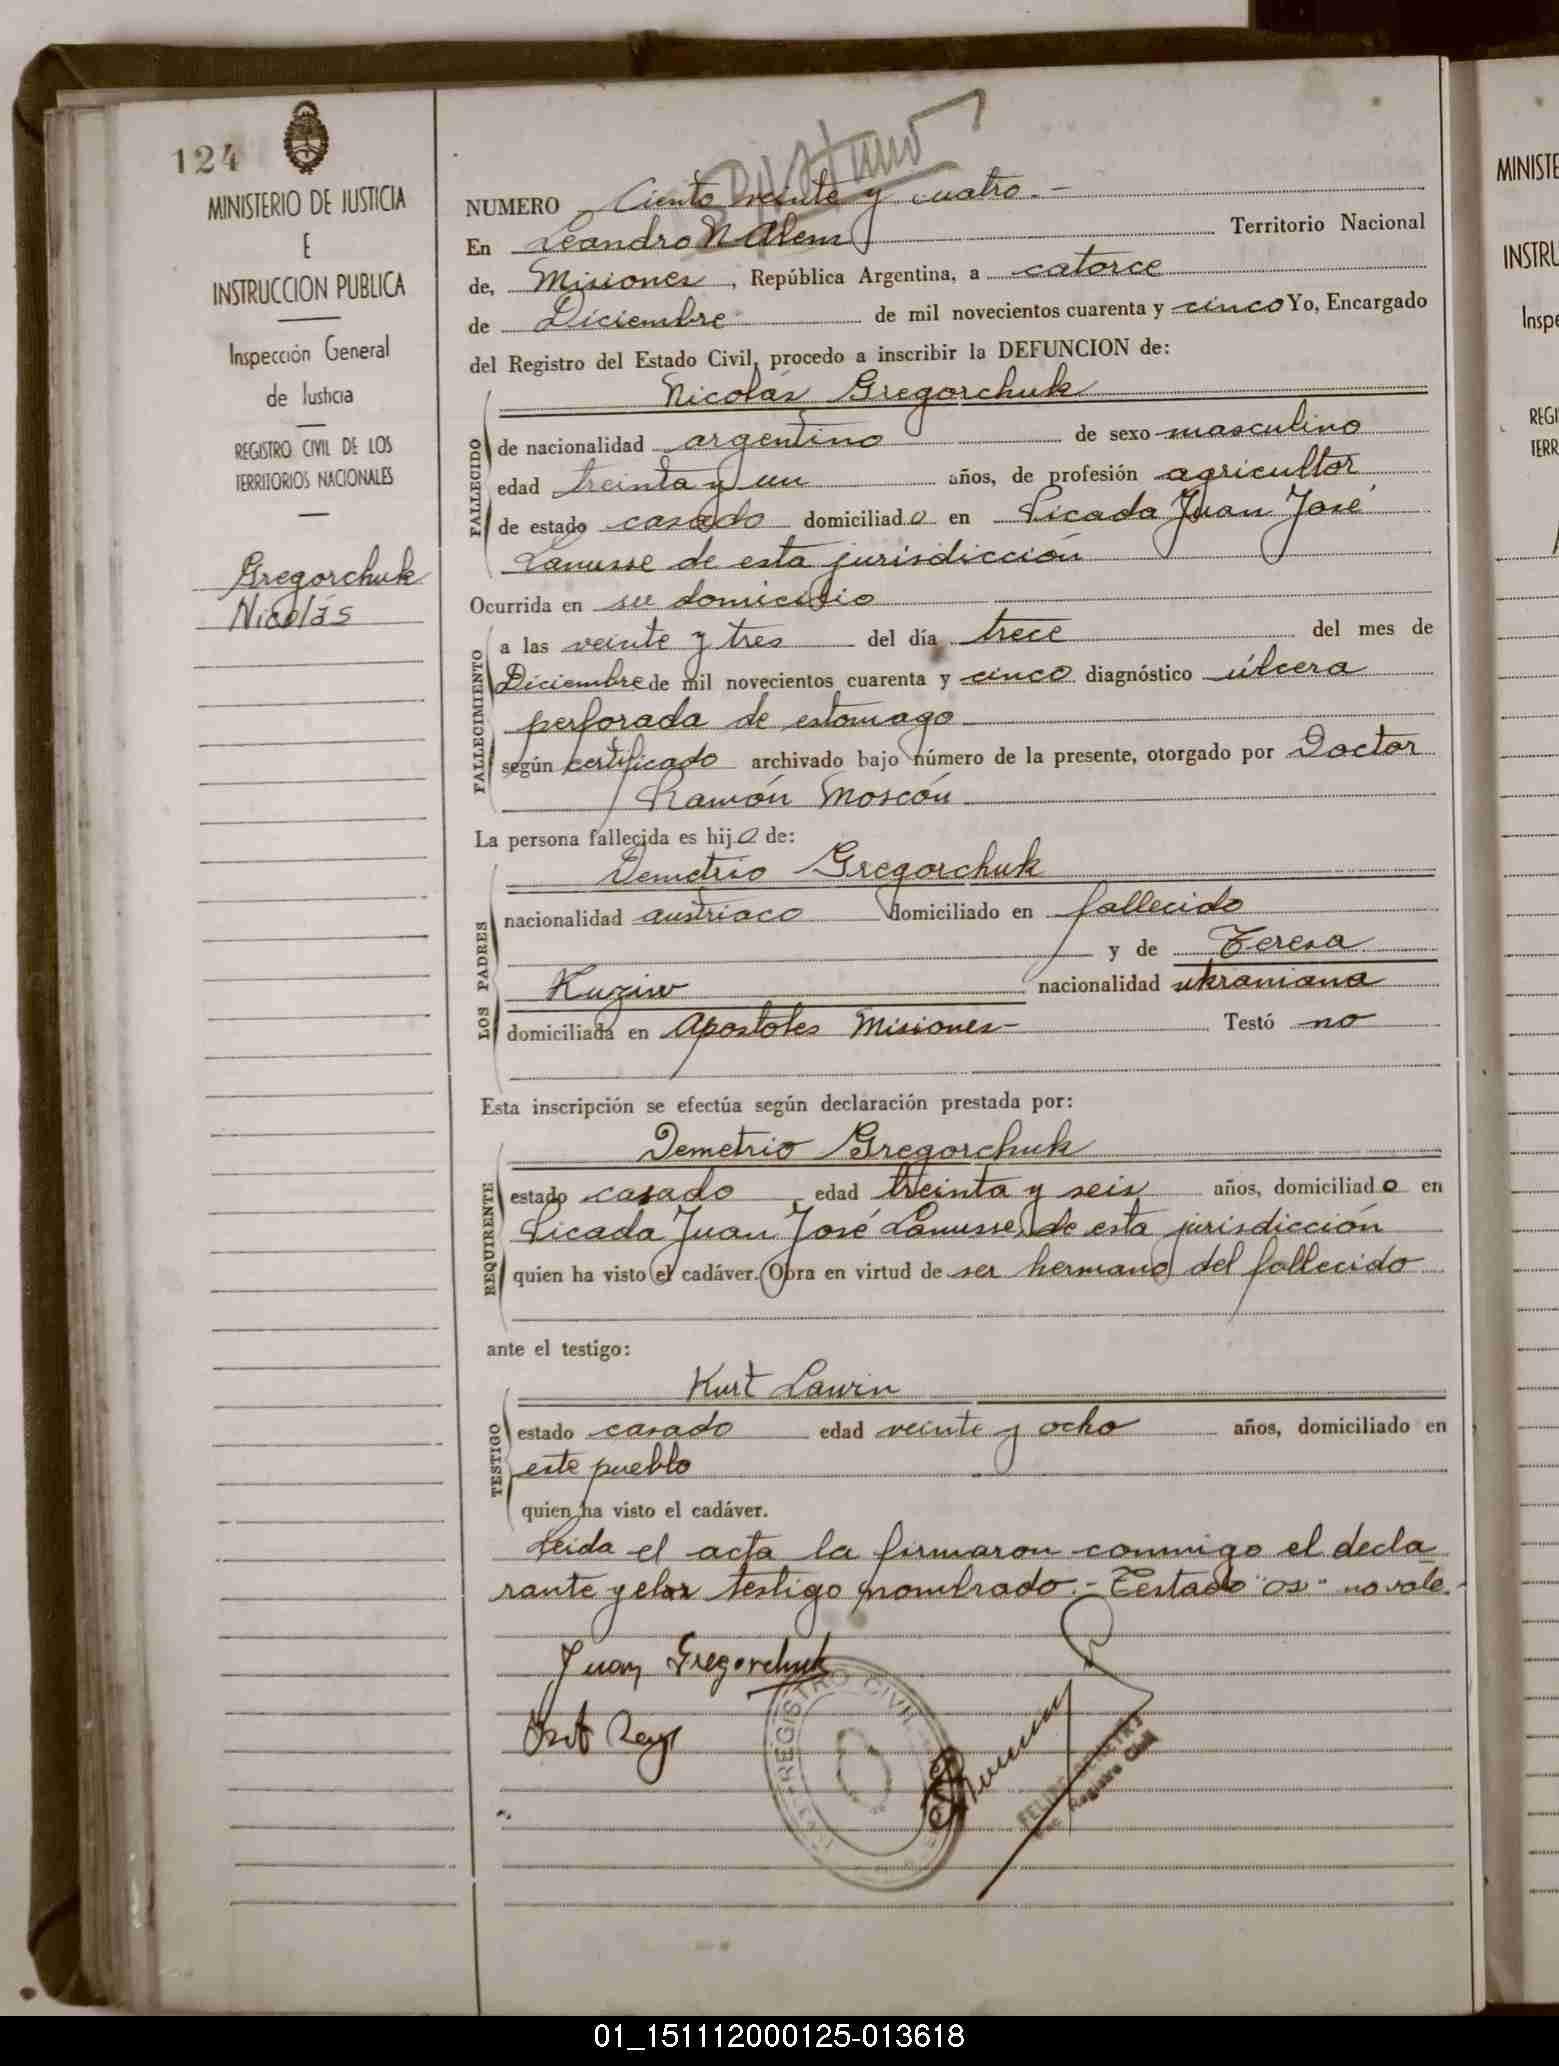 124
MINISTERIO DE JUSTICIA
E
INSTRUCCION PUBLICA
Inspección General
de Justicia
REGISTRO CIVIL DE LOS
TERRITORIOS NACIONALES
Gregorchuk
Nicolás
NUMERO Ciento veinte y cuatro.-
En Leandro N Alem Territorio Nacional
de, Misiones, República Argentina, a catorce
de Diciembre de mil novecientos cuarenta y cinco Yo, Encargado
del Registro del Estado Civil, procedo a inscribir la DEFUNCION de:
Nicolás Gregorchuk
FALLECIDO
de nacionalidad argentino de sexo masculino
edad treinta y un años, de profesión agricultor
de estado casado domiciliado en Picada Juan José
Lanusse de esta jurisdicción
Ocurrida en su domicilio
FALLECIMIENTO
a las veinte y tres del día trece del mes de
Diciembre de mil novecientos cuarenta y cinco diagnóstico úlcera
perforada de estomago
según certificado archivado bajo número de la presente, otorgado por Doctor
Ramón Moscón
La persona fallecida es hijo de:
Demetrio Gregorchuk
LOS PADRES
nacionalidad austriaco domiciliado en fallecido
y de Teresa
Kuziw nacionalidad ukraniana
domiciliada en Apostoles Misiones- Testó no
Esta inscripción se efectúa según declaración prestada por:
Demetrio Gregorchuk
REQUIRENTE
estado casado edad treinta y seis años, domiciliado en
Picada Juan José Lanusse, de esta jurisdicción
quien ha visto el cadáver. Obra en virtud de ser hermano del fallecido
ante el testigo:
Kurt Lawin
TESTIGO
estado casado edad veinte y ocho años, domiciliado en
este pueblo
quien ha visto el cadáver.
Leida el acta la firmaron conmigo el decla
rante y el testigo nombrado.- Testado "os" no vale.-
Juan Gregorchuk
REGISTRO CIVIL
Registro Civil
MINISTE
INSTRU
Inspe
REGI
TERR
01_151112000125-013618